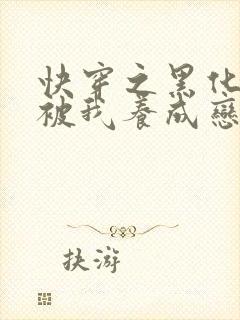 快穿之黑化
被我养成恋
扶游